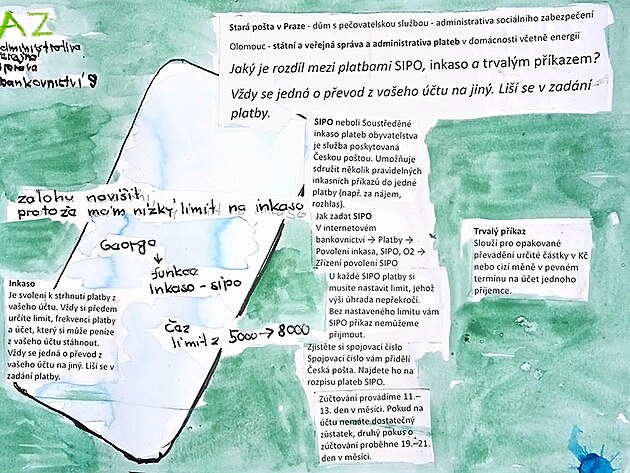 AZ
administrativa
státní
správa
bankovnictví
Stará pošta v Praze - dům s pečovatelskou službou - administrativa sociálního zabezpečení
Olomouc - státní a veřejná správa a administrativa plateb v domácnosti včetně energií
Jaký je rozdíl mezi platbami SIPO, inkaso a trvalým příkazem?
Vždy se jedná o převod z vašeho účtu na jiný. Liší se v zadání
platby.
SIPO neboli Soustředěné
inkaso plateb obyvatelstva
je služba poskytovaná
Českou poštou. Umožňuje
sdružit několik pravidelných
inkasních příkazů do jedné
platby (např. za nájem,
rozhlas).
zalohu navišit
protoža mam nizky limit na inkaso
Jak zadat SIPO
V internetovém
bankovnictví → Platby →
Povolení inkasa, SIPO, O2 →
Zřízení povolení SIPO
Trvalý příkaz
Slouží pro opakované
převádění určité částky v Kč
nebo cizí měně v pevném
termínu na účet jednoho
příjemce.
George
↓
funkce
Inkaso - sipo
U každé SIPO platby si
musíte nastavit limit, jehož
výši úhrada nepřekročí.
Bez nastaveného limitu vám
SIPO příkaz nemůžeme
přijmout.
Inkaso
Je svolení k strhnutí platby z
vašeho účtu. Vždy si předem
určíte limit, frekvenci platby
a účet, který si může peníze
z vašeho účtu stáhnout.
Vždy se jedná o převod z
vašeho účtu na jiný. Liší se v
zadání platby.
Čez
limit z 5000 → 8000
Zjistěte si spojovací číslo
Spojovací číslo vám přidělí
Česká pošta. Najdete ho na
rozpisu plateb SIPO.
Zúčtování provádíme 11.–
13. den v měsíci. Pokud na
účtu nemáte dostatečný
zůstatek, druhý pokus o
zúčtování proběhne 19.–21.
den v měsíci.